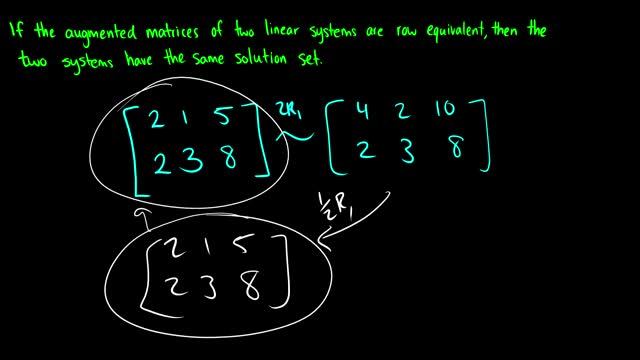 If the augmented matrices of two linear systems are row equivalent, then the
two systems have the same solution set.
2 1 5 2R₁ ~ 4 2 10
2 3 8 2 3 8
½R₁
2 1 5
2 3 8